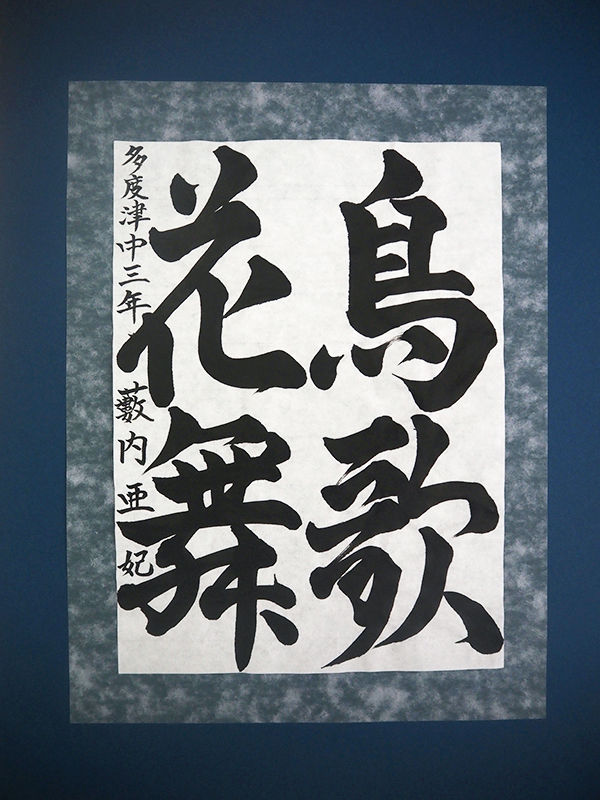 鳥歌
花舞
多度津中三年 藪内亜妃